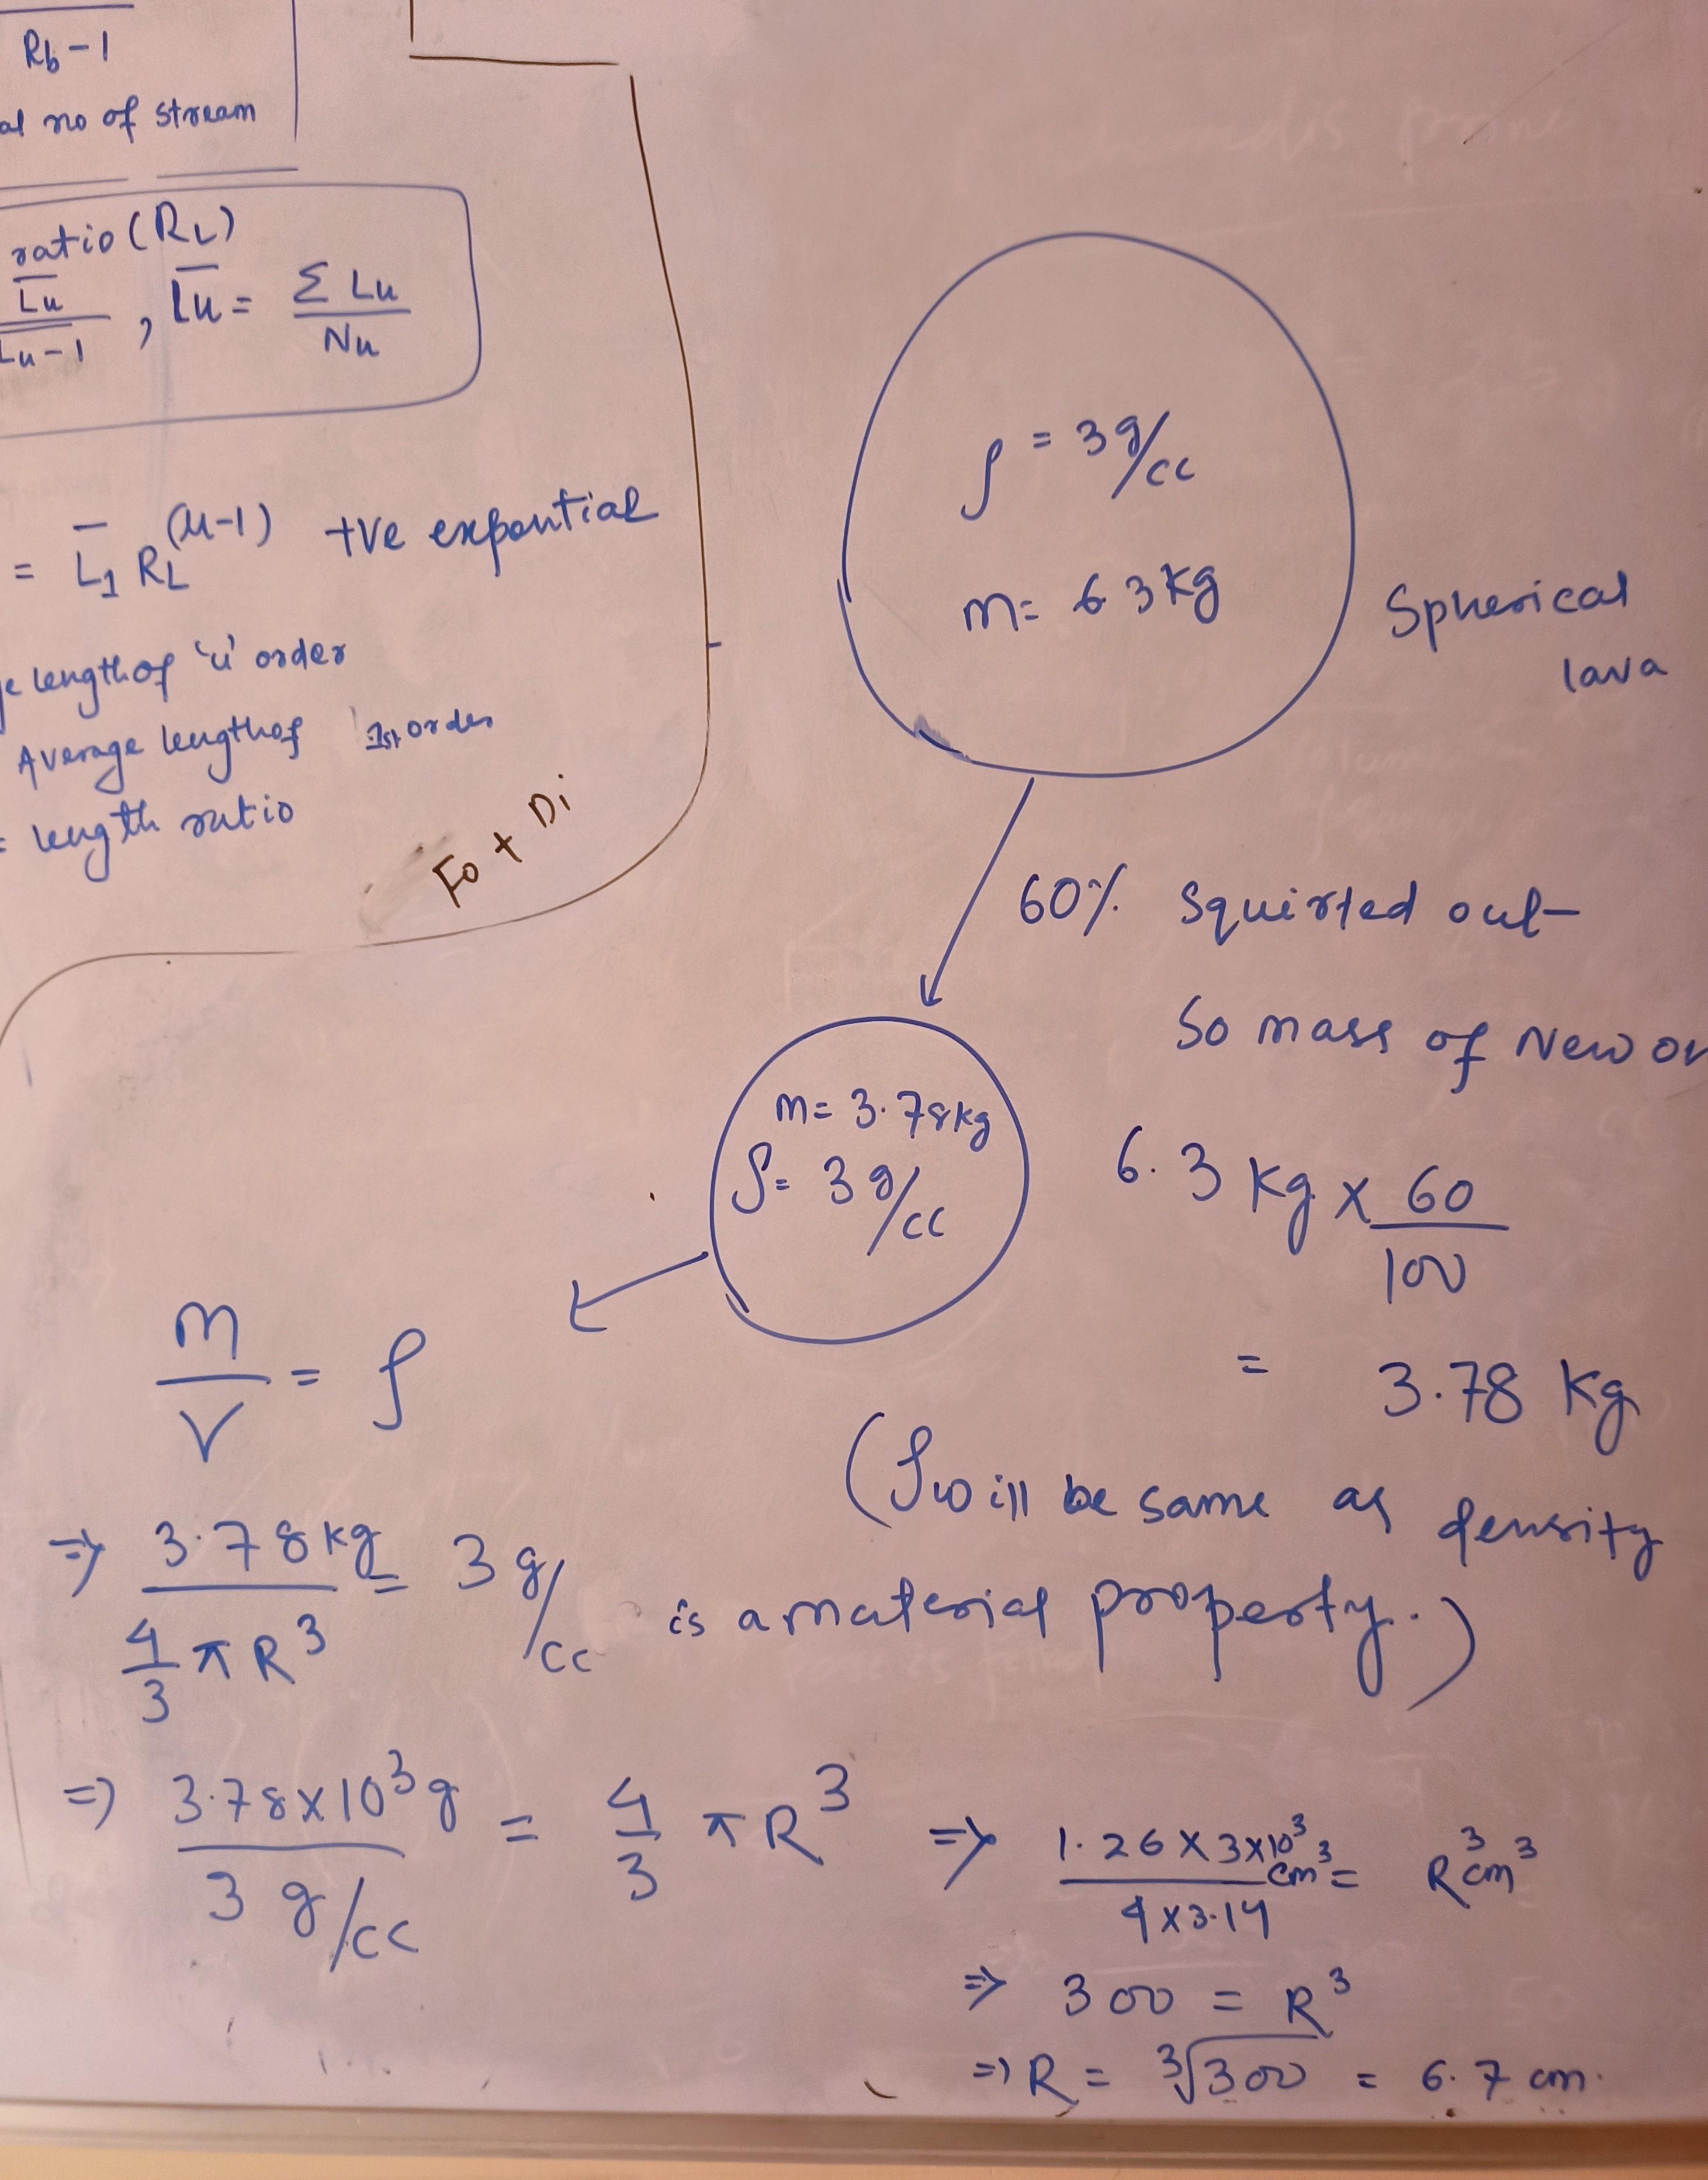 Rb-1
al no of stream
ratio (RL)
L̅u̅ / L̅u̅-1 , L̅u̅ = Σ Lu / Nu
= L̅1 RL^(u-1) +ve expontial
e length of 'u' order
Average length of 1st order
= length ratio
Fo + Di
ρ = 3 g/cc
m = 6.3 kg
Spherical
lava
60% Squirted out
So mass of New on
m = 3.78 kg
ρ = 3 g/cc
6.3 kg x 60/100
= 3.78 kg
m/V = ρ
(ρ will be same as density
is a material property.)
⇒ 3.78 kg / 4/3 π R³ = 3 g/cc
⇒ 3.78 x 10³ g / 3 g/cc = 4/3 π R³
⇒ 1.26 x 3 x 10³ cm³ / 4 x 3.14 = R³ cm³
⇒ 300 = R³
⇒ R = ³√300 = 6.7 cm.